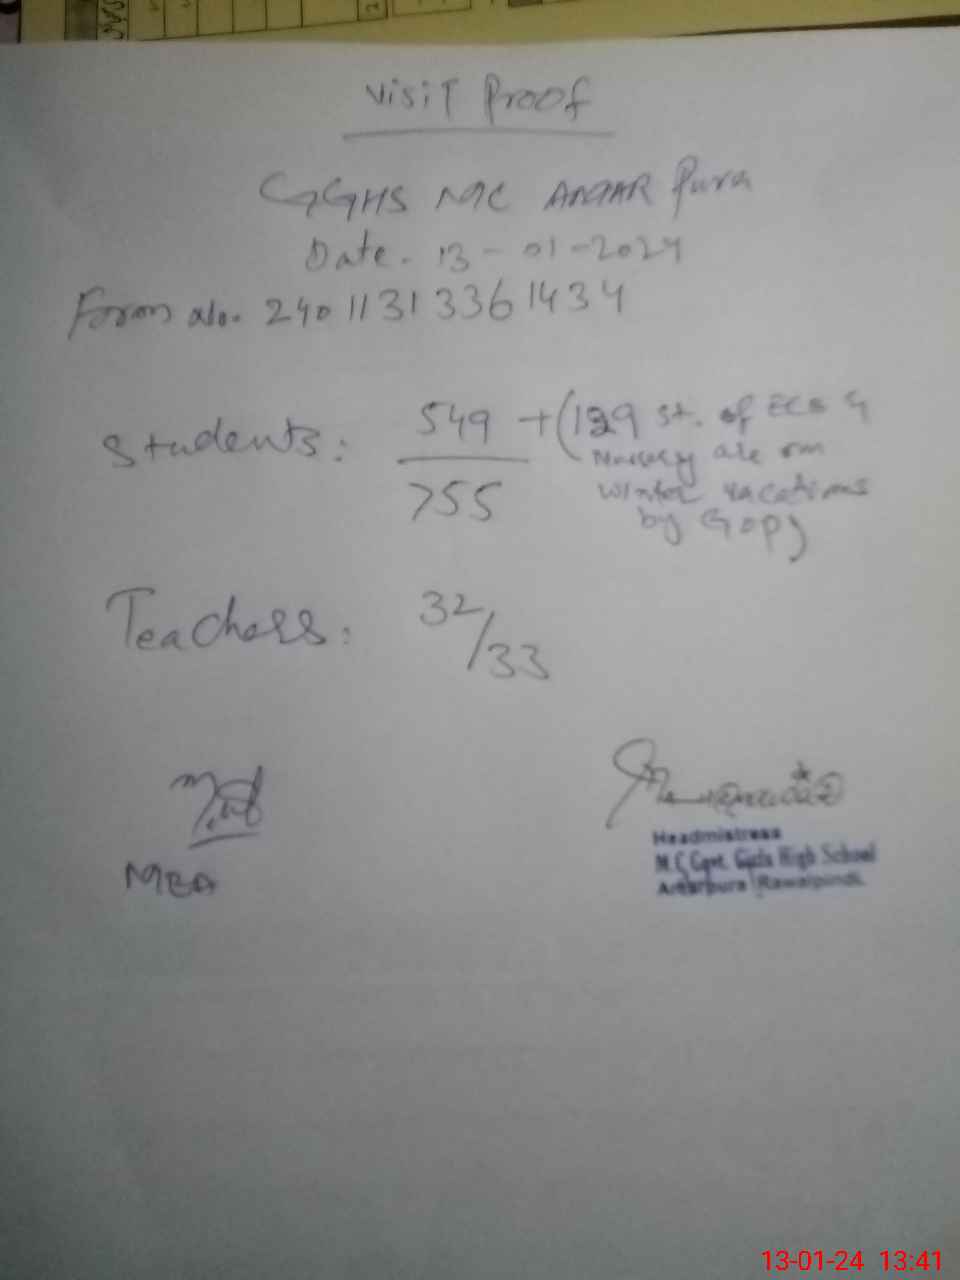 Visit Proof
GGHS MC ANGAR Pura
Date. 13-01-2024
Form No. 24011313361434
Students: 549 + (129 st. of ECE &
Nursery are on
755
winter vacations
by GOP)
Teachers: 32/33
MEA
Headmistress
M.C Govt. Girls High School
Rawalpindi.
13-01-24 13:41